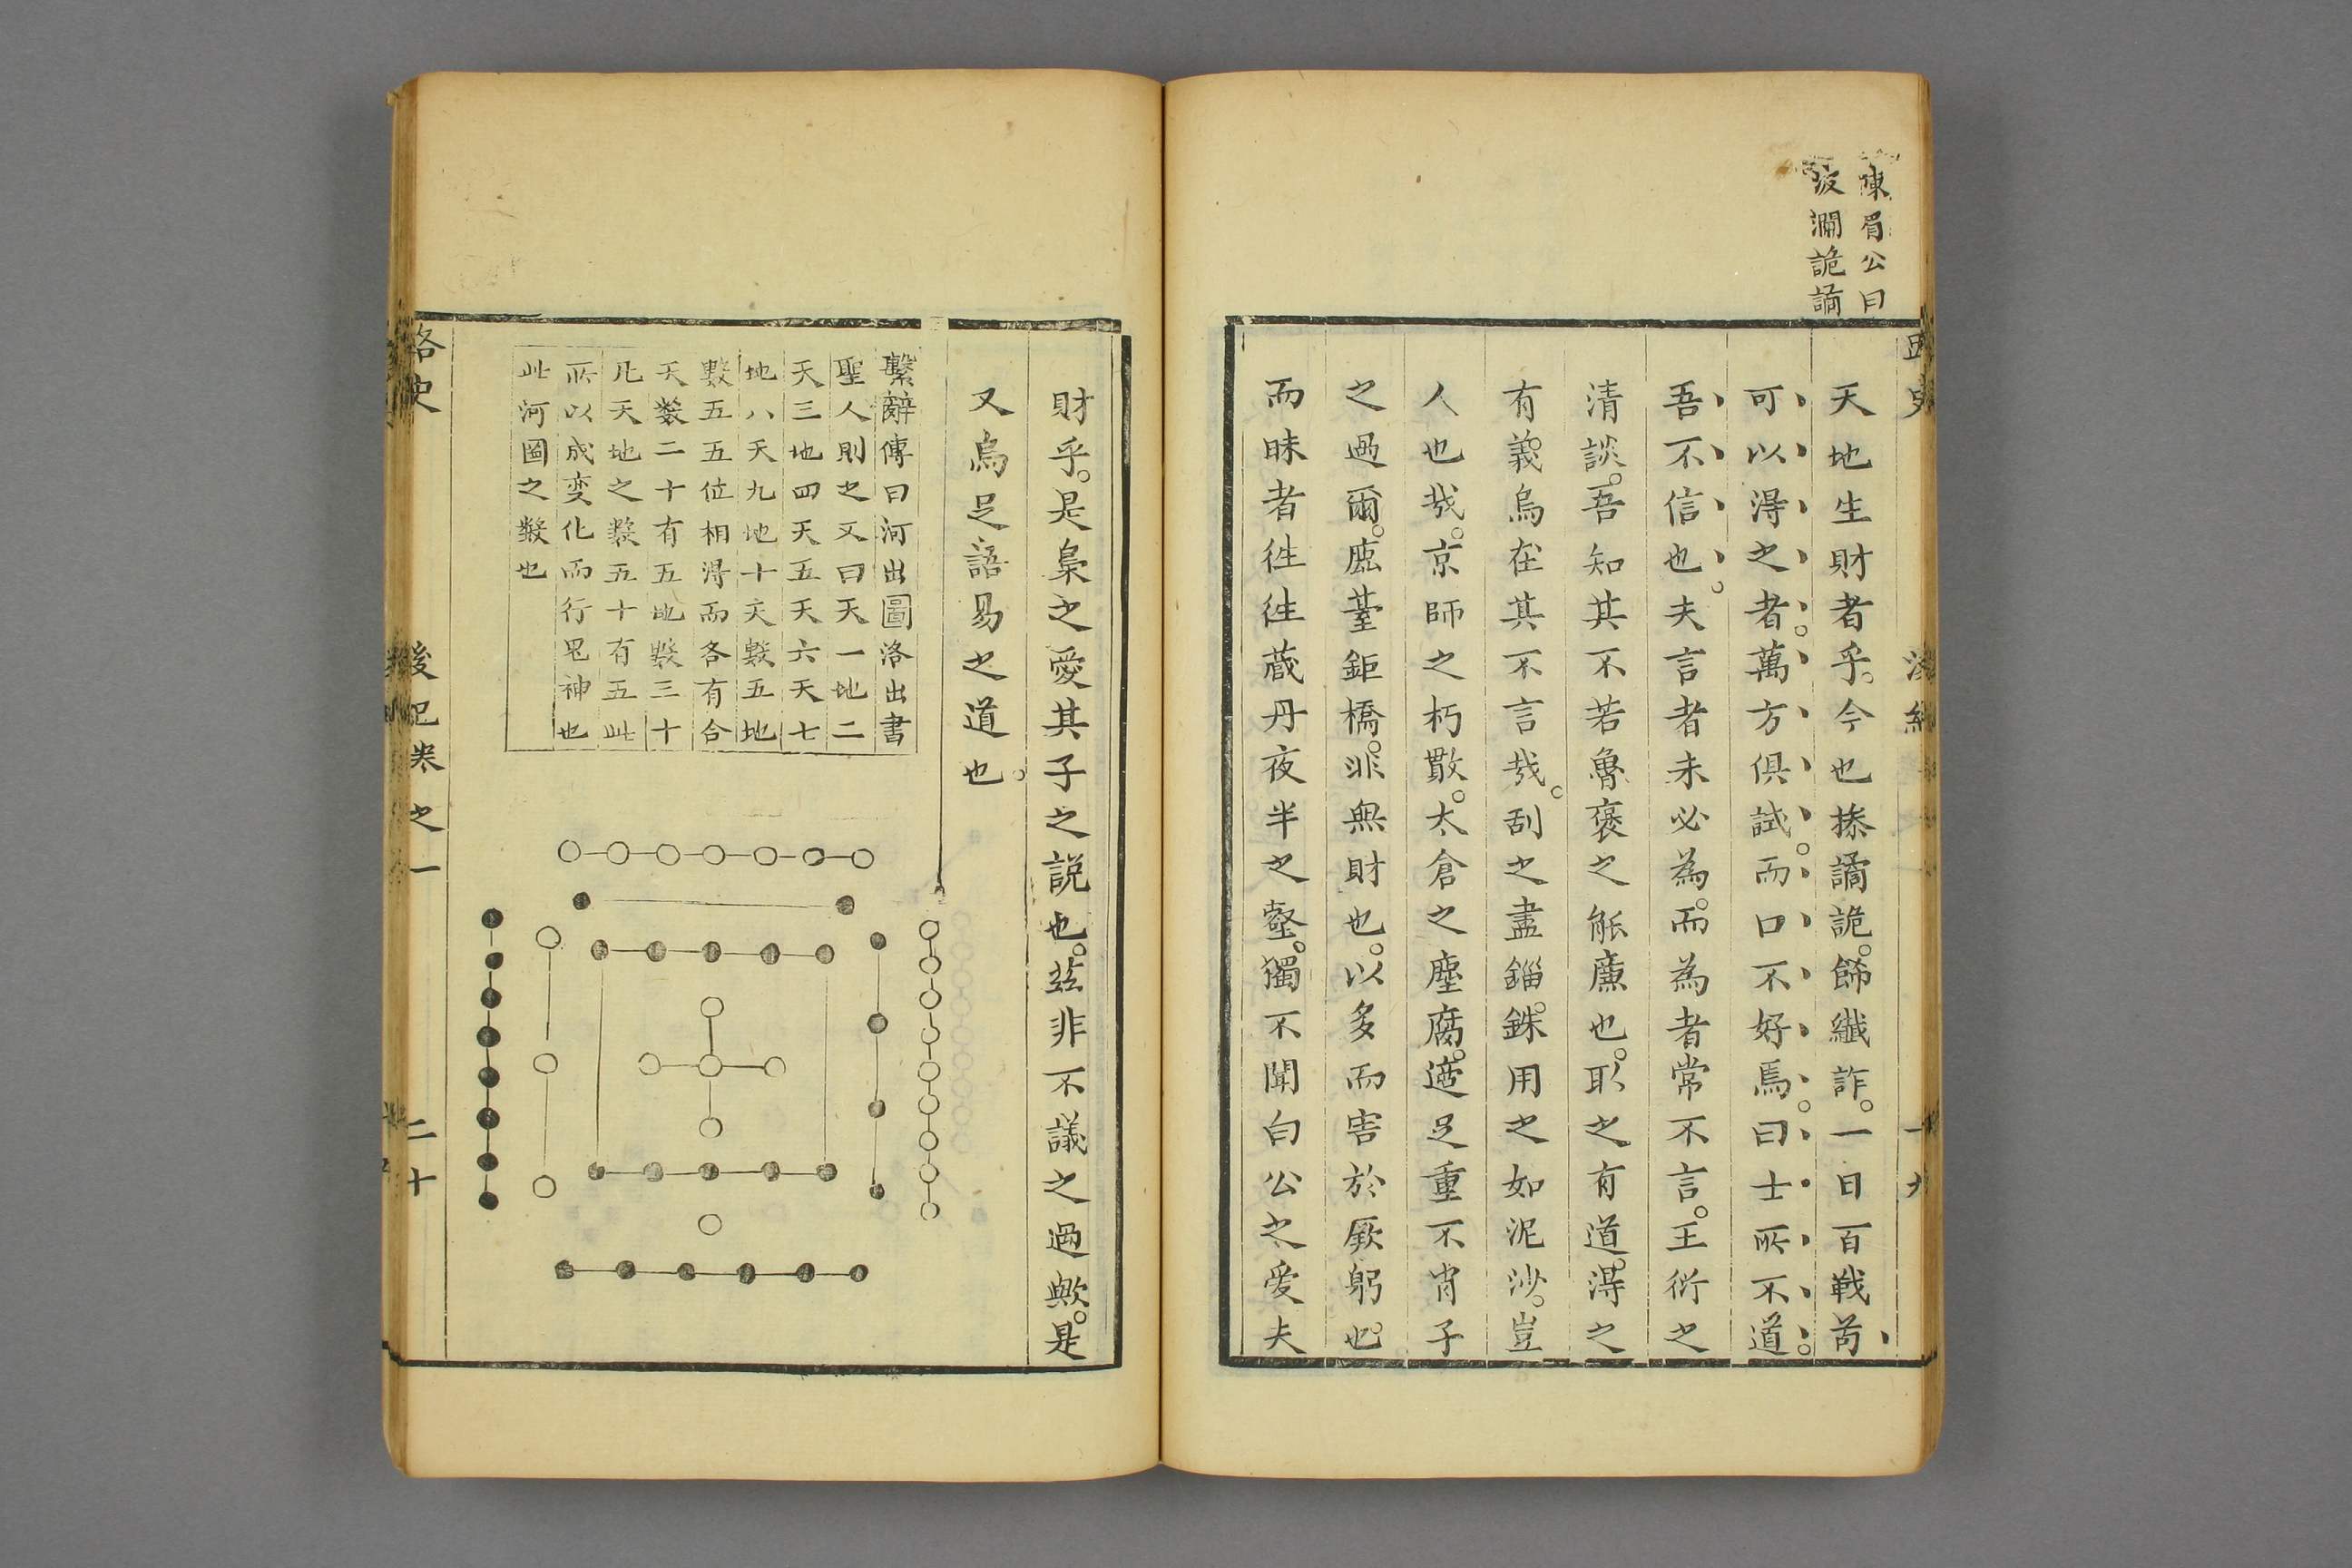 陳眉公曰
波瀾詭譎
天地生財者乎今也搽譎詭餙纖詐一日百戰苟
可以得之者萬方俱試而口不好焉曰士所不道
吾不信也夫言者未必為而為者常不言王衍之
清談吾知其不若魯褒之能廉也取之有道得之
有義烏在其不言㢤刮之盡錙銖用之如泥沙豈
人也㢤京師之朽散太倉之塵腐適足重不肖子
之過爾鹿䑓鉅橋非無財也以多而害於厥躬也
而昧者徃徃蔵丹夜半之壑獨不聞白公之爱夫
財乎是梟之愛其子之説也茲非不議之過歟是
又烏足語易之道也
繫辭傳曰河出圖洛出書
聖人則之又曰天一地二
天三地四天五天六天七
地八天九地十天數五地
數五五位相得而各有合
天數二十有五地數三十
凡天地之數五十有五此
所以成变化而行鬼神也
此河圖之數也
路史
後紀卷之一
二十